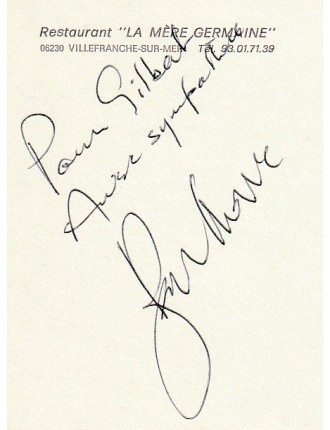 Restaurant "LA MÈRE GERMAINE"
06230 VILLEFRANCHE-SUR-MER Tél. 93.01.71.39
Pour Gilbert
Avec sympathie